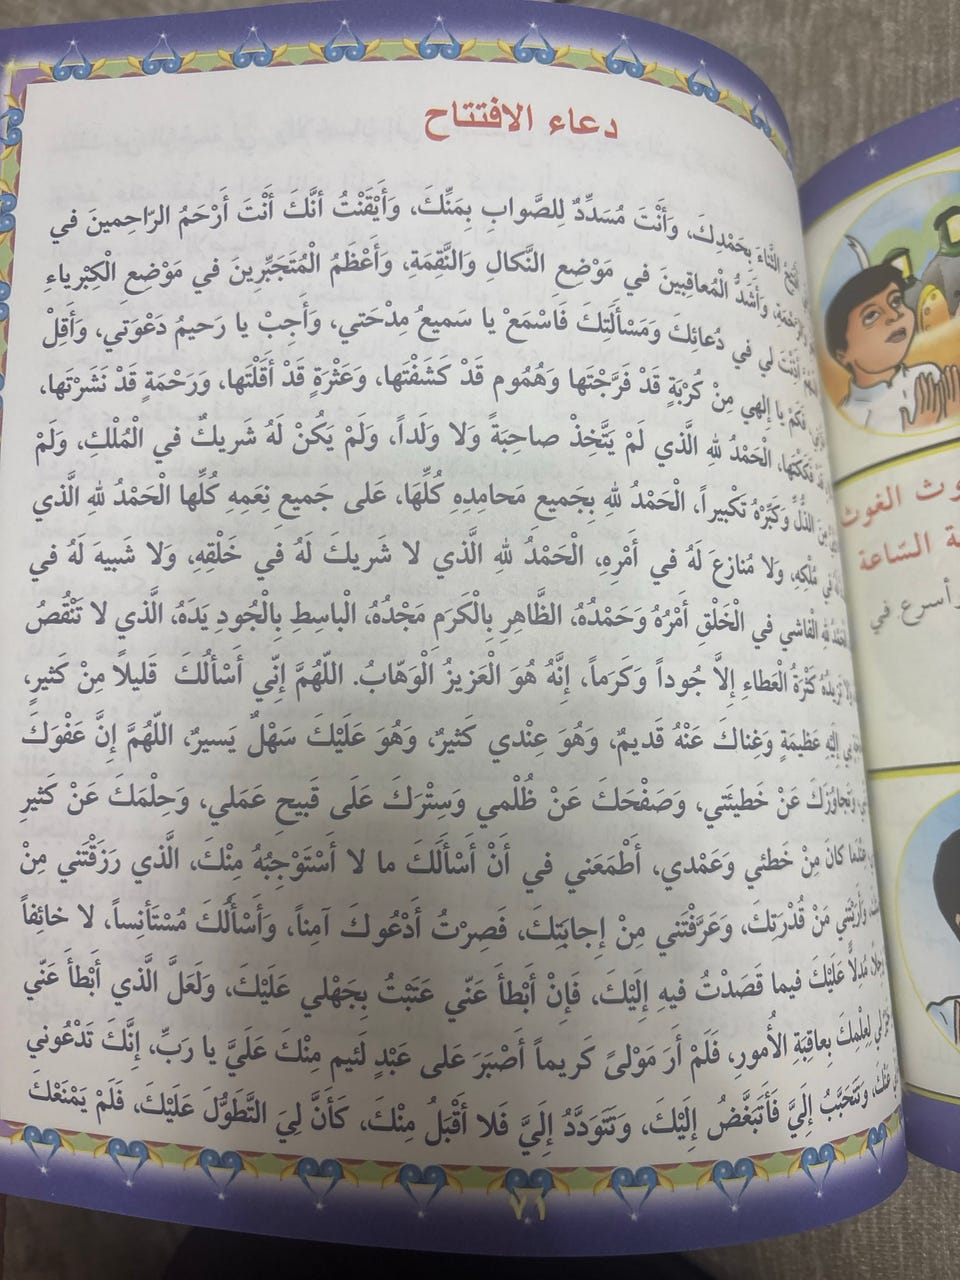 دعاء الافتتاح
الثَّنَاءَ بِحَمْدِكَ، وَأَنْتَ مُسَدِّدٌ لِلصَّوابِ بِمَنِّكَ، وَأَيْقَنْتُ أَنَّكَ أَنْتَ أَرْحَمُ الرّاحِمينَ في
وَأَشَدُّ الْمُعاقِبينَ في مَوْضِعِ النَّكالِ وَالنَّقِمَةِ، وَأَعْظَمُ الْمُتَجَبِّرينَ في مَوْضِعِ الْكِبْرياءِ
لي في دُعائِكَ وَمَسْأَلَتِكَ فَاسْمَعْ يا سَميعُ مِدْحَتي، وَأَجِبْ يا رَحيمُ دَعْوَتي، وَأَقِلْ
فَكَمْ يا إلهي مِنْ كُرْبَةٍ قَدْ فَرَّجْتَها وَهُمُومٍ قَدْ كَشَفْتَها، وَعَثْرَةٍ قَدْ أَقَلْتَها، وَرَحْمَةٍ قَدْ نَشَرْتَها،
قَدْ فَكَكْتَها، الْحَمْدُ للهِ الَّذي لَمْ يَتَّخِذْ صاحِبَةً وَلا وَلَداً، وَلَمْ يَكُنْ لَهُ شَريكٌ في الْمُلْكِ، وَلَمْ
مِنَ الذُّلِّ وَكَبِّرْهُ تَكْبيراً، الْحَمْدُ للهِ بِجَميعِ مَحامِدِهِ كُلِّهَا، عَلى جَميعِ نِعَمِهِ كُلِّها الْحَمْدُ للهِ الَّذي
في مُلْكِهِ، وَلا مُنازِعَ لَهُ في أَمْرِهِ، الْحَمْدُ للهِ الَّذي لا شَريكَ لَهُ في خَلْقِهِ، وَلا شَبيهَ لَهُ في
للهِ الْفاشي في الْخَلْقِ أَمْرُهُ وَحَمْدُهُ، الظَّاهِرِ بِالْكَرَمِ مَجْدُهُ، الْباسِطِ بِالْجُودِ يَدَهُ، الَّذي لا تَنْقُصُ
تَزيدُهُ كَثْرَةُ الْعَطاءِ إلاَّ جُوداً وَكَرَماً، إِنَّهُ هُوَ الْعَزيزُ الْوَهّابُ. اللّهُمَّ إنّي أَسْأَلُكَ قَليلاً مِنْ كَثيرٍ،
بي إلَيْهِ عَظيمَةٍ وَغِناكَ عَنْهُ قَديمٌ، وَهُوَ عِنْدي كَثيرٌ، وَهُوَ عَلَيْكَ سَهْلٌ يَسيرٌ، اللّهُمَّ إنَّ عَفْوَكَ
وَتَجاوُزَكَ عَنْ خَطيئَتي، وَصَفْحَكَ عَنْ ظُلْمي وَسِتْرَكَ عَلَى قَبيحِ عَمَلي، وَحِلْمَكَ عَنْ كَثيرِ
كانَ مِنْ خَطَئي وَعَمْدي، أَطْمَعَني في أَنْ أَسْأَلَكَ ما لا أَسْتَوْجِبُهُ مِنْكَ، الَّذي رَزَقْتَني مِنْ
وَأَرَيْتَني مَنْ قُدْرَتِكَ، وَعَرَّفْتَني مِنْ إجابَتِكَ، فَصِرْتُ أَدْعُوكَ آمِناً، وَأَسْأَلُكَ مُسْتَأْنِساً، لا خائِفاً
مُدِلاًّ عَلَيْكَ فيما قَصَدْتُ فيهِ إلَيْكَ، فَإنْ أَبْطَأَ عَنّي عَتَبْتُ بِجَهْلي عَلَيْكَ، وَلَعَلَّ الَّذي أَبْطَأَ عَنّي
لي لِعِلْمِكَ بِعاقِبَةِ الأُمورِ، فَلَمْ أَرَ مَوْلىً كَريماً أَصْبَرَ عَلى عَبْدٍ لَئيمٍ مِنْكَ عَلَيَّ يا رَبِّ، إنَّكَ تَدْعُوني
عَنْكَ، وَتَتَحَبَّبُ إلَيَّ فَأَتَبَغَّضُ إلَيْكَ، وَتَتَوَدَّدُ إلَيَّ فَلا أَقْبَلُ مِنْكَ، كَأَنَّ لِيَ التَّطَوُّلَ عَلَيْكَ، فَلَمْ يَمْنَعْكَ
٧١
الغوث
السّاعة
وأسرع في